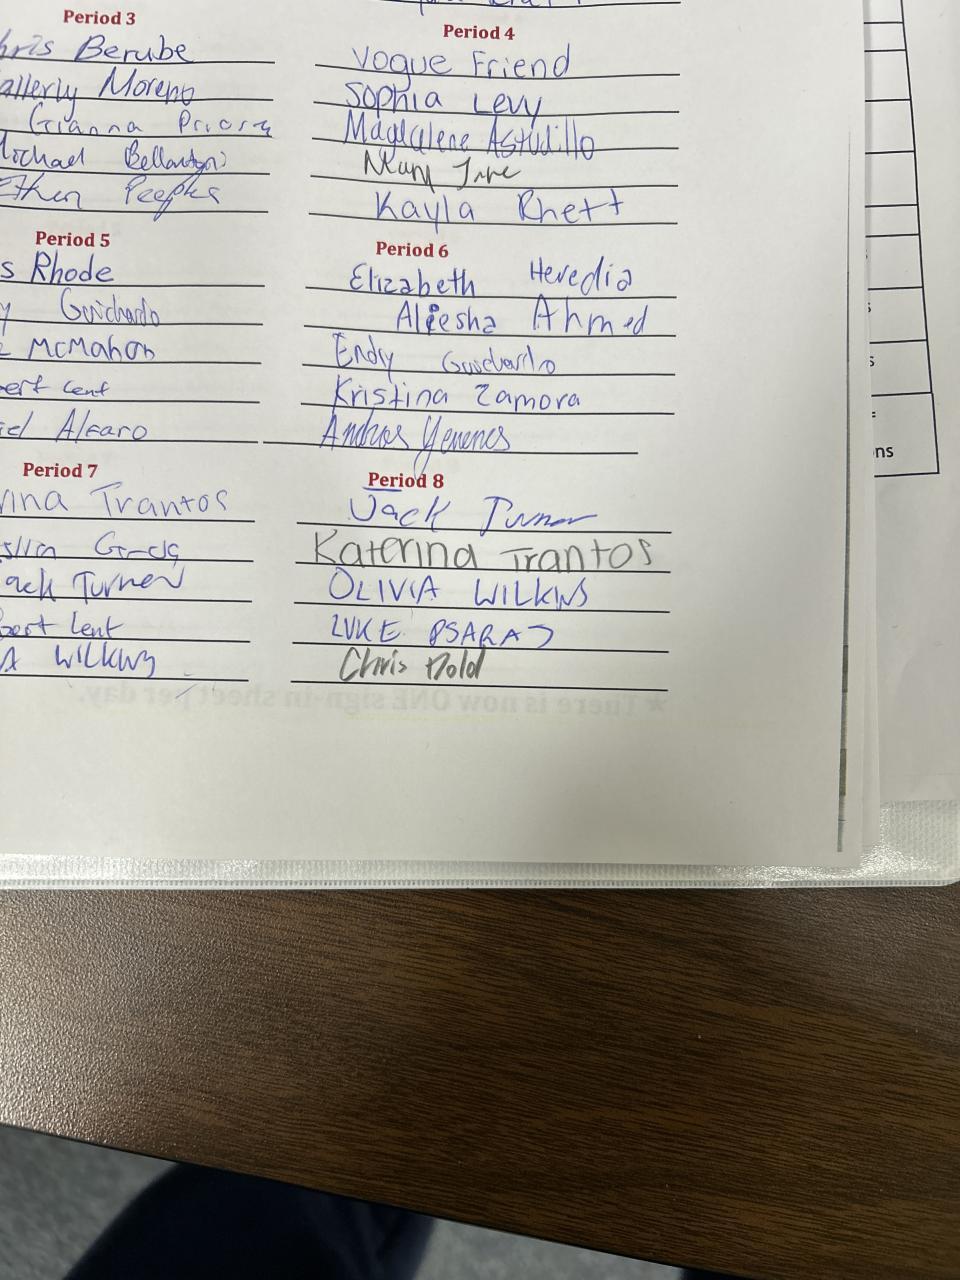 Period 3
hris Berube
allerly Moreno
Gianna Priory
Michael Bellantoni
Ethen Peeples
Period 4
Vogue Friend
Sophia Levy
Magdalene Astudillo
Kayla Rhett
Period 5
s Rhode
y Guichardo
McMahon
bert Lent
iel Alfaro
Period 6
Elizabeth Heredia
Aleesha Ahmed
Endy Guichardo
Kristina Zamora
Period 7
rina Trantos
ack Turner
bert Lent
A WILKINS
Period 8
Jack Turner
Katerina Trantos
OLIVIA WILKINS
LUKE PSARAS
Chris Dold
★ There is now ONE sign-in sheet per day.
s
ns